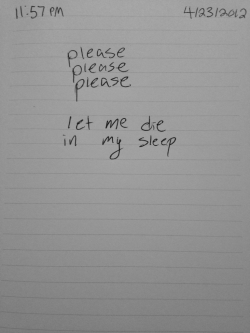 11:57 PM 4/23/2012
please
please
please
let me die
in my sleep